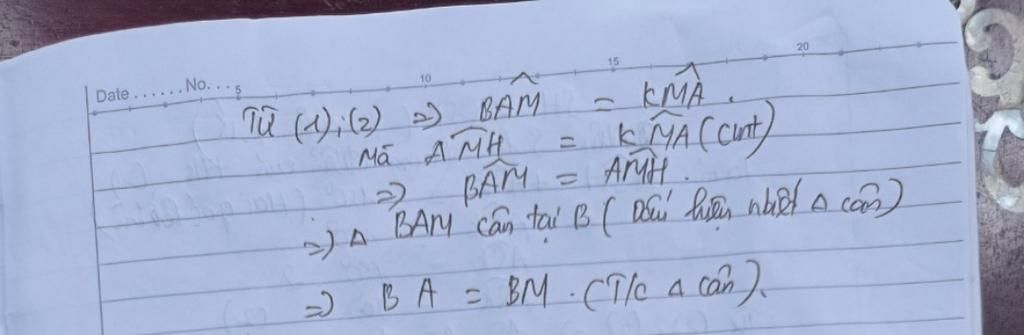 Date ...... No....
5 10 15 20
Từ (1); (2) => BAM̂ = KMÂ.
Mà AMĤ = KMÂ (cmt)
=> BÂM = AM̂H.
=> Δ BAM cân tại B (Dấu hiệu nhbiết Δ cân)
=> BA = BM. (T/c Δ cân).